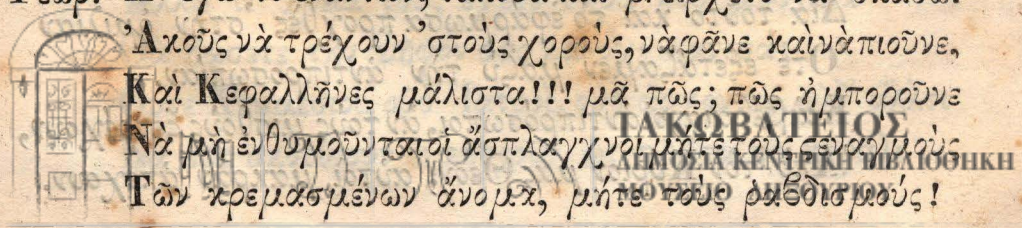 Ἀκοῦς νὰ τρέχουν 'στοὺς χοροὺς, νὰφᾶνε καὶνὰπιοῦνε,
Καὶ Κεφαλλῆνες μάλιστα!!! μᾶ πῶς; πῶς ἠμποροῦνε
Νὰ μὴ ἐνθυμοῦνται οἱ ἄσπλαγχνοι μήτε τοὺς στεναγμοὺς
Τῶν κρεμασμένων ἄνομα, μήτε τοὺς ῥαβδισμούς!
ΙΑΚΩΒΑΤΕΙΟΣ
ΔΗΜΟΣΙΑ ΚΕΝΤΡΙΚΗ ΒΙΒΛΙΟΘΗΚΗ
ΜΟΥΣΕΙΟ ΛΗΞΟΥΡΙΟΥ